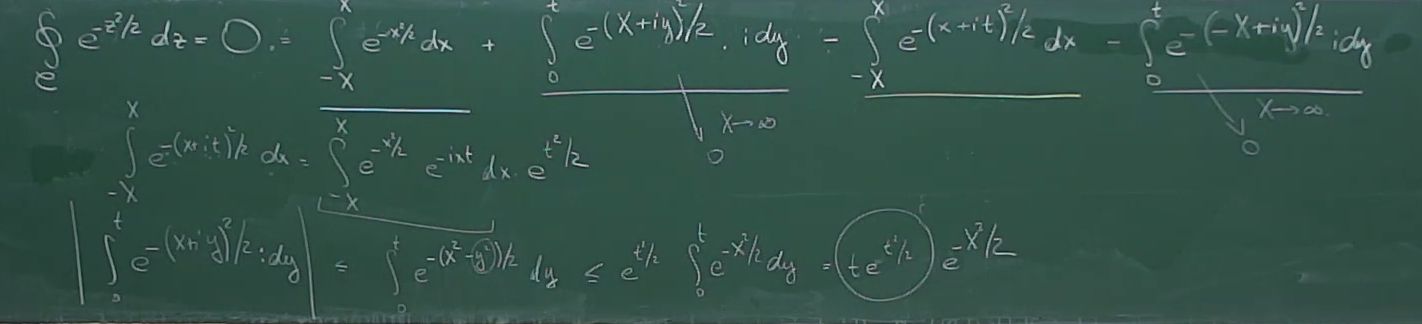 ∮_C e^{-z²/2} dz = 0. = ∫_{-X}^{X} e^{-x²/2} dx + ∫_0^t e^{-(X+iy)²/2} . i dy - ∫_{-X}^{X} e^{-(x+it)²/2} dx - ∫_0^t e^{-(-X+iy)²/2} i dy
X→∞ 0 X→∞. 0
∫_{-X}^{X} e^{-(x+it)²/2} dx = ∫_{-X}^{X} e^{-x²/2} e^{-ixt} dx · e^{t²/2}
|∫_0^t e^{-(X+iy)²/2} i dy| ≤ ∫_0^t e^{-(X²-y²)/2} dy ≤ e^{t²/2} ∫_0^t e^{-X²/2} dy = t e^{t²/2} e^{-X²/2}